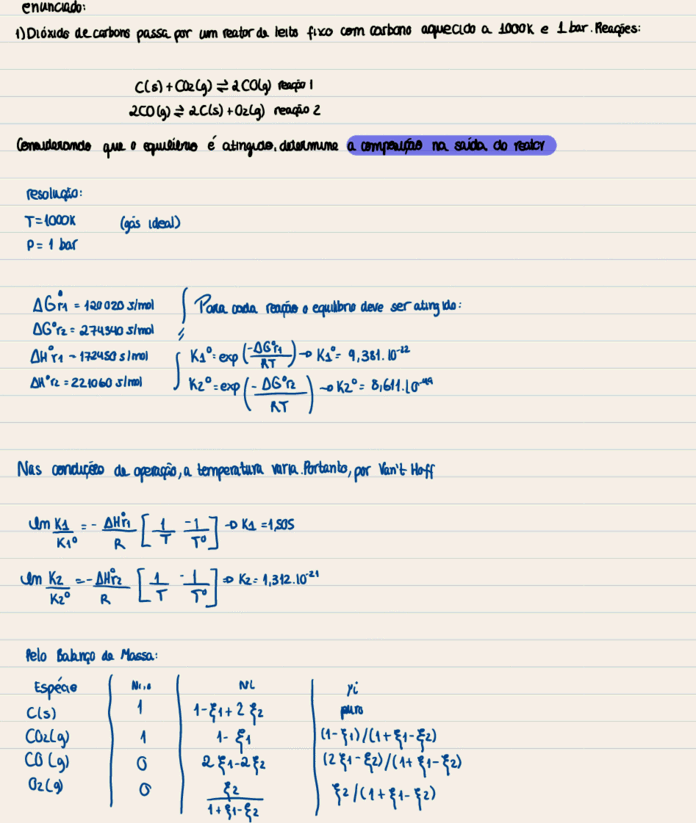 enunciado:
1) Dióxido de carbono passa por um reator de leito fixo com carbono aquecido a 1000K e 1 bar. Reações:
C(s) + CO2(g) ⇌ 2CO(g) reação 1
2CO(g) ⇌ 2C(s) + O2(g) reação 2
Considerando que o equilíbrio é atingido, determine a composição na saída do reator
resolução:
T = 1000K (gás ideal)
P = 1 bar
ΔG°r1 = 120020 J/mol
ΔG°r2 = 274340 J/mol
ΔH°r1 - 172450 J/mol
ΔH°r2 = 221060 J/mol
Para cada reação o equilíbrio deve ser atingido:
K1° = exp(-ΔG°r1/RT) → K1° = 9,381.10^-22
K2° = exp(-ΔG°r2/RT) → K2° = 8,611.10^-49
Nas condições de operação, a temperatura varia. Portanto, por Van't Hoff
ln K1/K1° = - ΔH°r1/R [1/T - 1/T°] → K1 = 1,805
ln K2/K2° = - ΔH°r2/R [1/T - 1/T°] → K2 = 1,312.10^-21
Pelo Balanço de Massa:
Espécie Ni,0 Ni yi
C(s) 1 1-ξ1+2ξ2 puro
CO2(g) 1 1-ξ1 (1-ξ1)/(1+ξ1-ξ2)
CO(g) 0 2ξ1-2ξ2 (2ξ1-ξ2)/(1+ξ1-ξ2)
O2(g) 0 ξ2/1+ξ1-ξ2 ξ2/(1+ξ1-ξ2)